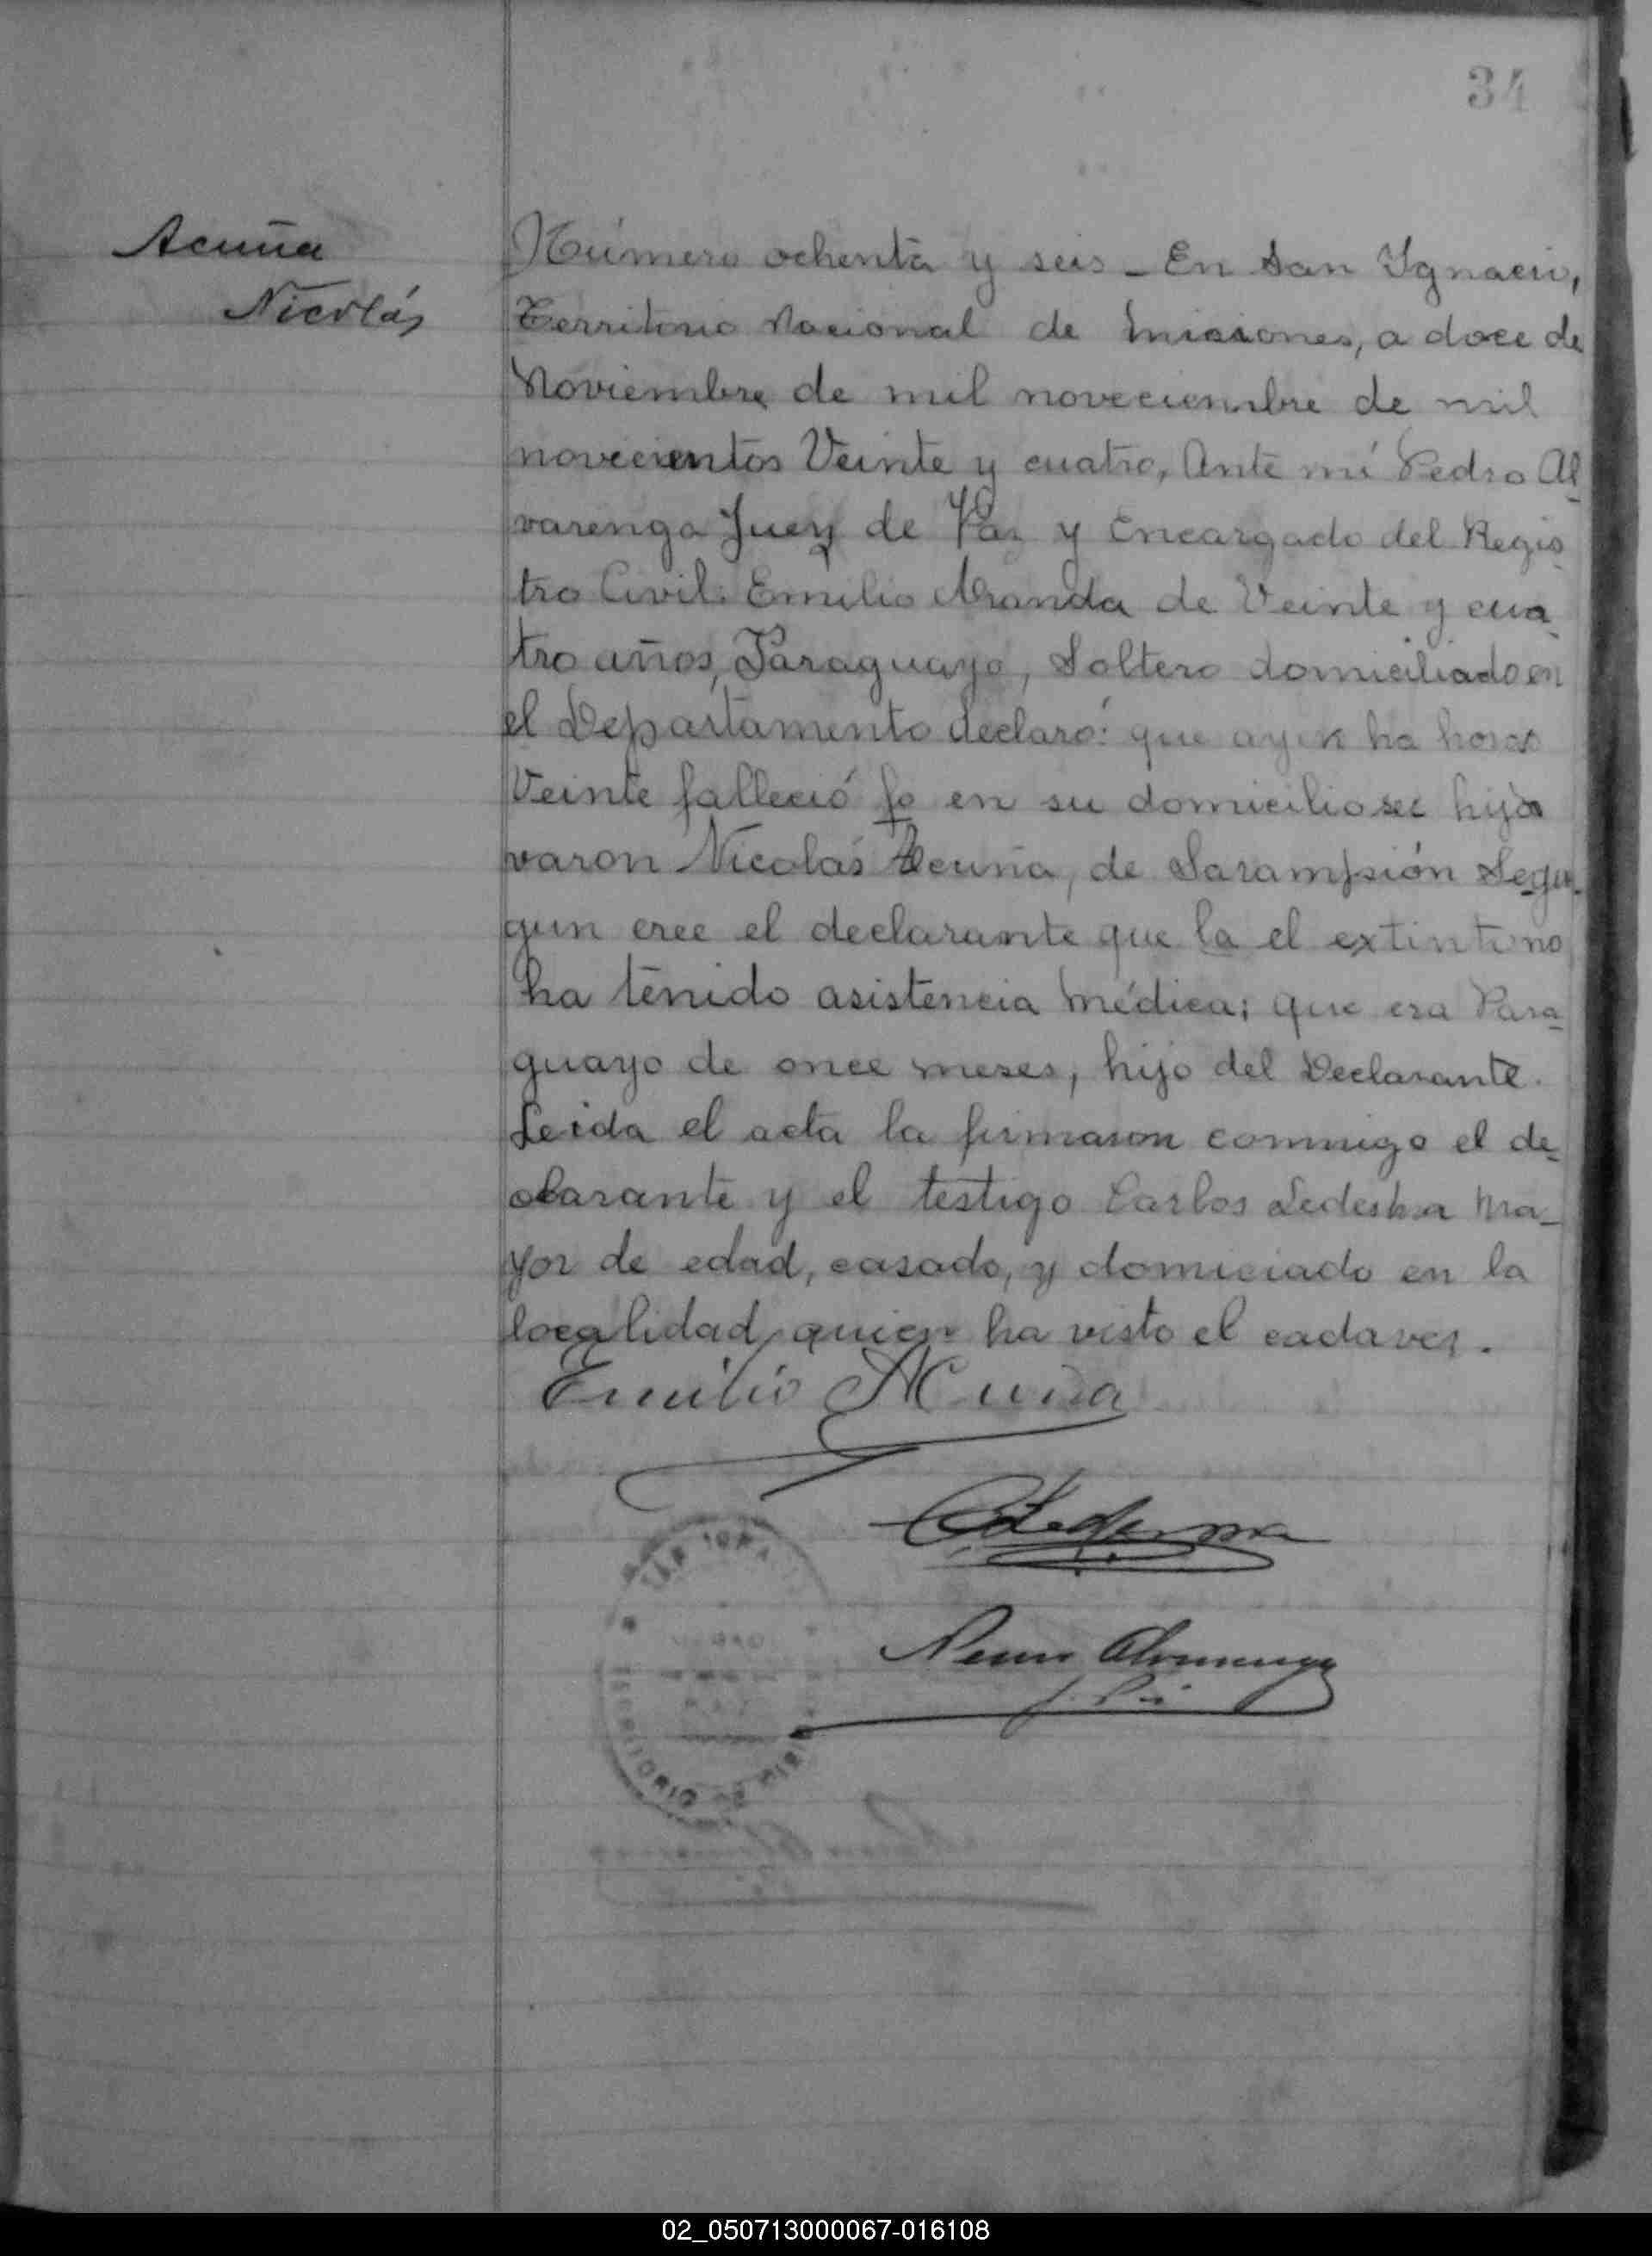 34
Acuña
Nicolás
Número ochenta y seis - En San Ygnacio,
Territorio Nacional de Misiones, a doce de
Noviembre de mil noveciembre de mil
novecientos Veinte y cuatro, Ante mí Pedro Al
varenga Juez de Paz y Encargado del Regis
tro Civil: Emilio Aranda de Veinte y cua
tro años, Paraguayo, Soltero domiciliado en
el Departamento declaró: que ayer ha horas
Veinte falleció fo en su domicilio su hijo
varon Nicolás Acuña, de Sarampsión Segu-
gun cree el declarante que la el extinto no
ha tenido asistencia médica; que era Para
guayo de once meses, hijo del Declarante.
Leida el acta la firmaron conmigo el de
clarante y el testigo Carlos Ledesma ma-
yor de edad, casado, y domiciado en la
localidad, quien ha visto el cadaver.
Emilio Acuña
C Ledesma
Alvarenga
TERRITORIO DE
02_050713000067-016108